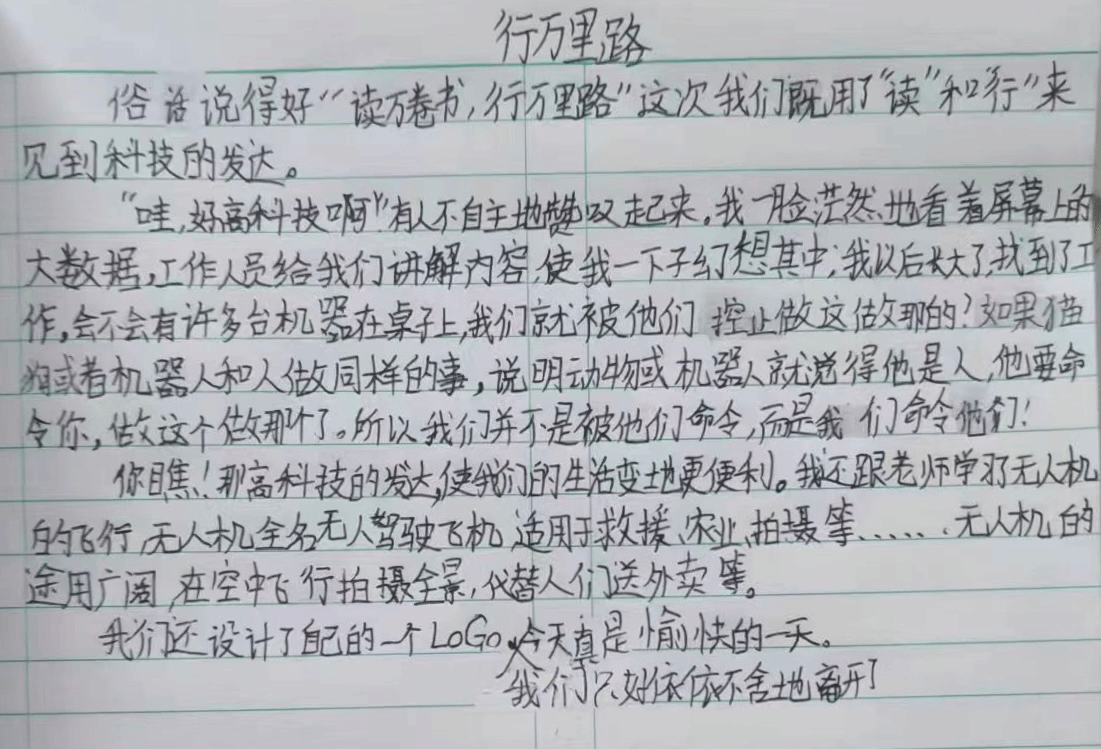 行万里路
俗话说得好“读万卷书,行万里路”这次我们既用了“读”和“行”来
见到科技的发达。
“哇,好高科技啊”有人不自主地赞叹起来。我一脸茫然地看着屏幕上的
大数据,工作人员给我们讲解内容,使我一下子幻想其中;我以后长大了,找到了工
作,会不会有许多台机器在桌子上,我们就被他们控止做这做那的?如果猫
狗或者机器人和人做同样的事,说明动物或机器人就觉得他是人,他要命
令你,做这个做那个了。所以我们并不是被他们命令,而是我们命令他们!
你瞧!那高科技的发达,使我们的生活变地更便利。我还跟老师学习了无人机
的飞行,无人机全名无人驾驶飞机,适用于救援、农业、拍摄等……无人机的
途用广阔,在空中飞行拍摄全景,代替人们送外卖等。
我们还设计了自己的一个LoGo。今天真是愉快的一天。
我们只好依依不舍地离开了